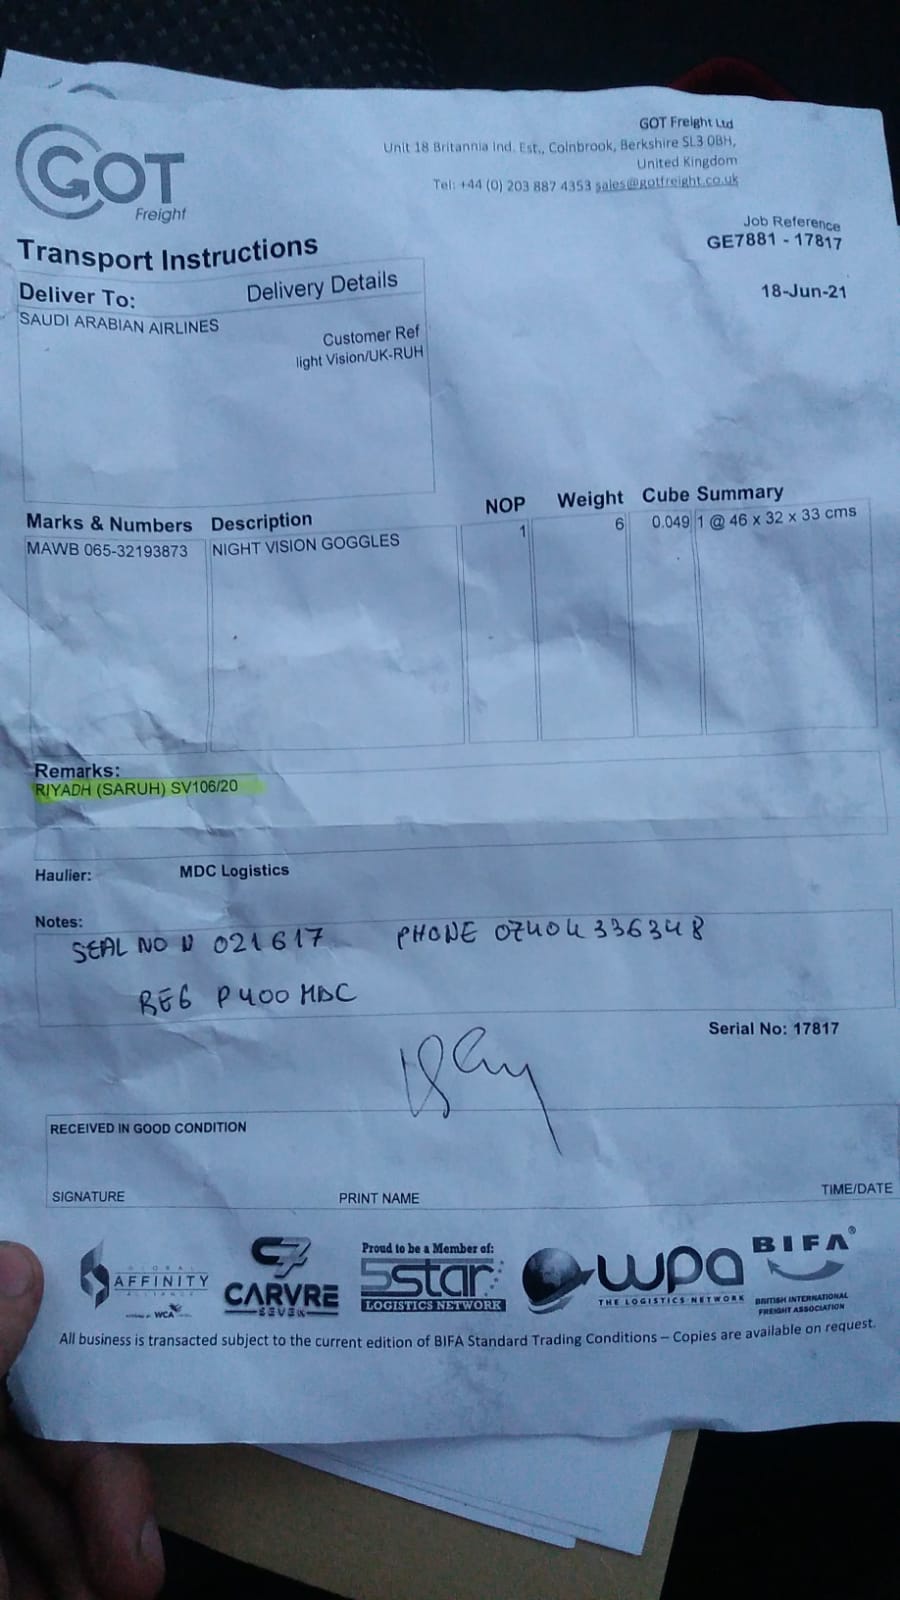 GOT
Freight
GOT Freight Ltd
Unit 18 Britannia Ind. Est., Colnbrook, Berkshire SL3 0BH,
United Kingdom
Tel: +44 (0) 203 887 4353 sales@gotfreight.co.uk
Job Reference
GE7881 - 17817
18-Jun-21
Transport Instructions
Deliver To: Delivery Details
SAUDI ARABIAN AIRLINES
Customer Ref
light Vision/UK-RUH
Marks & Numbers Description NOP Weight Cube Summary
MAWB 065-32193873 NIGHT VISION GOGGLES 1 6 0.049 1 @ 46 x 32 x 33 cms
Remarks:
RIYADH (SARUH) SV106/20
Haulier: MDC Logistics
Notes:
SEAL NO N 021617 PHONE 07404336348
REG P400MDC
Serial No: 17817
RECEIVED IN GOOD CONDITION
SIGNATURE PRINT NAME TIME/DATE
GLOBAL
AFFINITY
ALLIANCE
WCA
C7
CARVRE
SEVEN
Proud to be a Member of:
5star
LOGISTICS NETWORK
wpa
THE LOGISTICS NETWORK
BIFA®
BRITISH INTERNATIONAL
FREIGHT ASSOCIATION
All business is transacted subject to the current edition of BIFA Standard Trading Conditions – Copies are available on request.